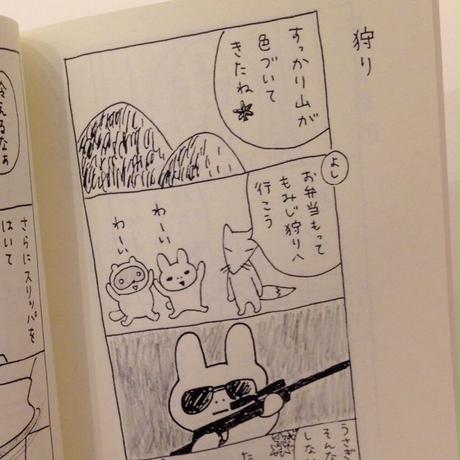 狩り
すっかり山が
色づいて
きたね
よし
お弁当もって
もみじ狩りへ
行こう
わーい
わーい
うさぎ
そんな
しない
た
冷えるなぁ
さらにスリッパを
はいて